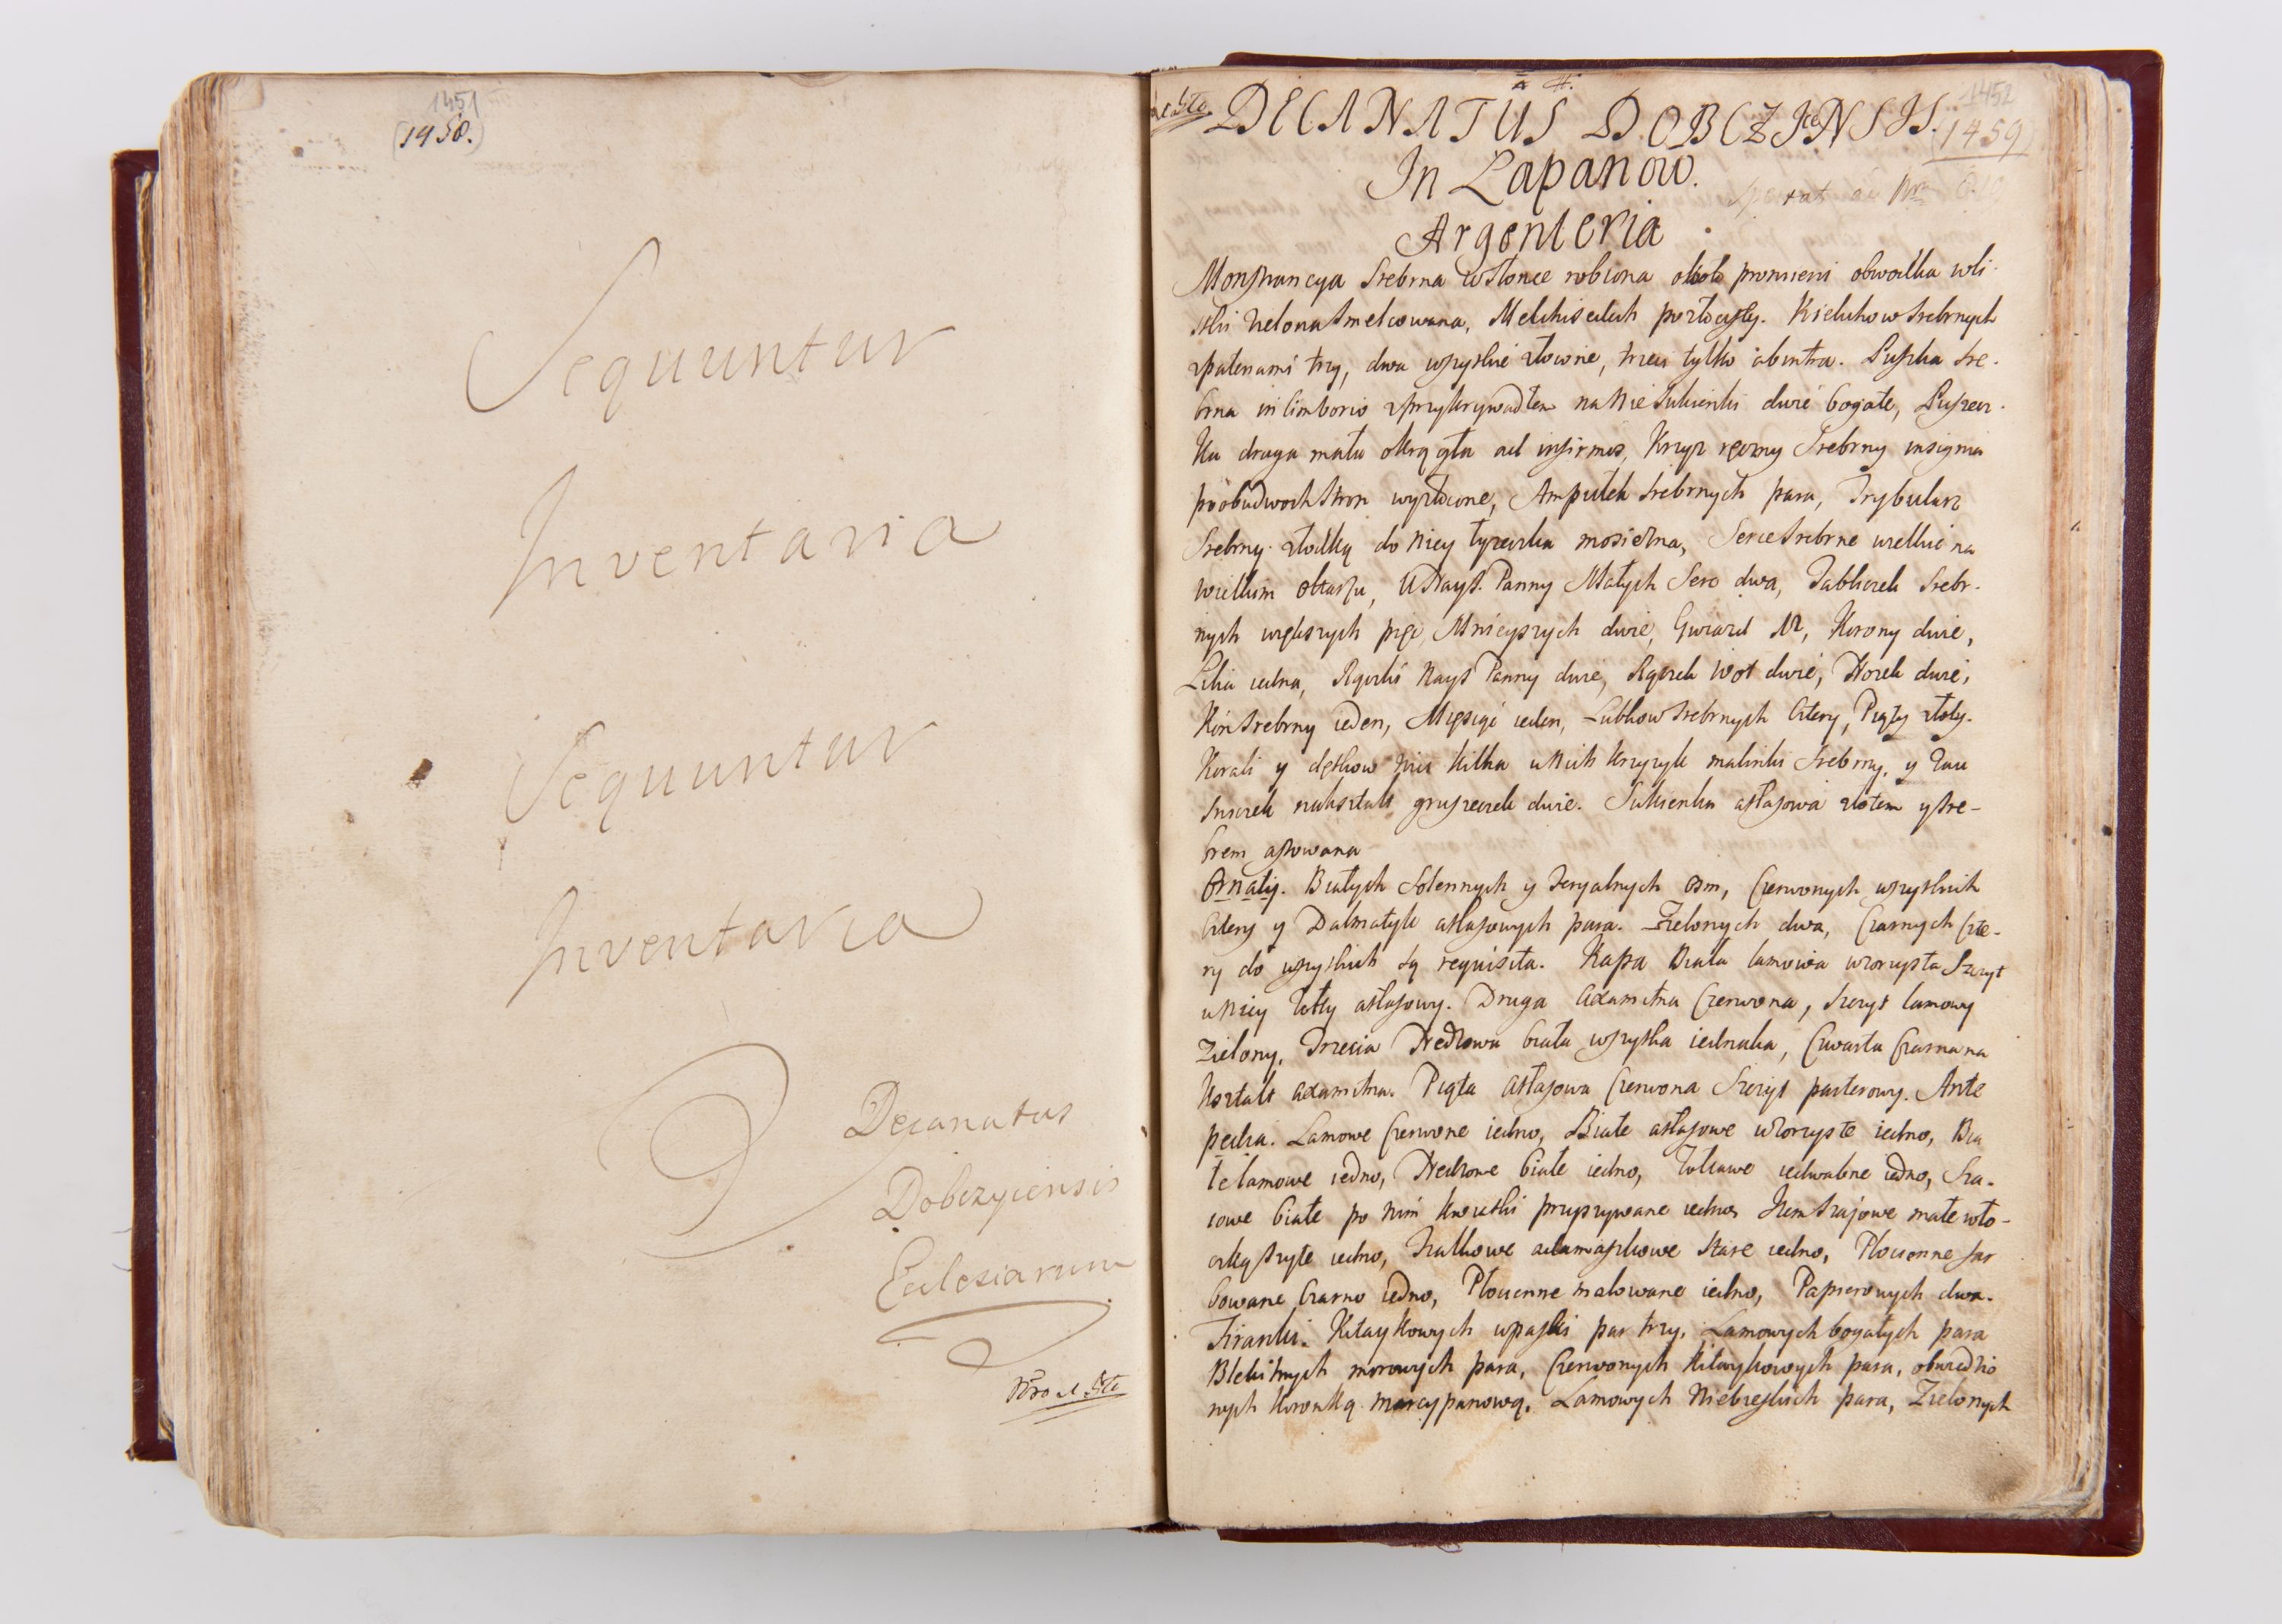 1451
(1450.)
Sequuntur
Inventaria
Sequuntur
Inventaria
Decanatus
Dobczycensis
Ecclesiarum
Nro 1 Sto
A #.
1452
DECANATUS DOBCZICENSIS.
1459
In Lapanow.
Argenteria
Monstrancya Srebrna w Słonce robiona około promieni obwodka w li-
stki zielona smelcowana, Melchisedech pozłocisty. Kielichow srebrnych
z patenami trzy, dwa wszystkie złocone, trzeci tylko abintra. Puszka Sre-
brna in Cimborio z przykrywadłem na Nie Sukienki dwie bogate, Puszecz-
ka druga mała okrągła ad infirmos, Krzyż ręczny Srebrny insignia
po obudwoch stron wyzłocone, Ampułek srebrnych para, Trybularz
Srebrny z łodką do Niey łyżeczka mosiężna, Serce Srebrne wielkie na
wielkim ołtarzu, U Nays. Panny Małych Serc dwa, Tabliczek Srebr-
nych większych pięć, Mnieyszych dwie, Gwiazd 12, Korony dwie,
Lilia iedna, Rączki Nays Panny dwie, Rączek wot dwie, Nożek dwie,
Koń srebrny ieden, Miesiąc ieden, Lubkow srebrnych Cztery, Piąty złoty.
Korali y dętkow nici kilka u Nich krzyzyk malinki Srebrny, y Zau
sniczek nakształt gruszeczek dwie. Sukienka atłasowa złotem y sre-
brem aftowana
Ornaty. Białych Solennych y feryalnych osm, Czerwonych wszystkich
Cztery y Dalmatyk atłasowych para. Zielonych dwa, Czarnych Czte-
ry do wszystkich są requisita. Kapa Biała lamowa wzorzysta Szczyt
u Niey żołty atłasowy. Druga Adamitna Czerwona, Szczyt lamowy
Zielony. Trzecia biała wszystka iednaka, Czwarta Czarna na
Kształt adamitna. Piąta Atłasowa Czerwona Szczyt parterowy. Ante
pedia. Lamowe Czerwone iedno, Białe atłasowe wzorzyste iedno, Bia
łe lamowe iedno, białe iedno, iedwabne iedno, Sza-
iowe białe po Nim kwiatki przyszywane iedno, Item Szajowe małe włó-
czką szyte iedno, adamaszkowe stare iedno, Płocienne far
bowane Czarno iedno, Płocienne malowane iedno, Papierowych dwa.
Firanki. Kitaykowych w paski par trzy, Lamowych bogatych para
Błekitnych morowych para, Czerwonych kitaykowych para, obwiedzio
nych Koronką marcypanową, Lamowych Niebieskich para, Zielonych